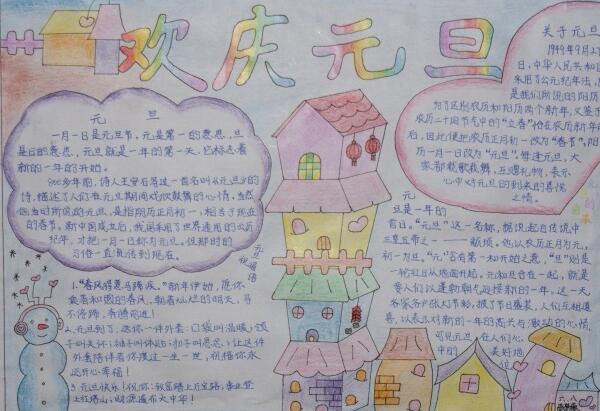 欢庆元旦
元 旦
一月一日是元旦节,元是第一的意思,旦
是日的意思,元旦就是一年的第一天,它标志着
新的一年的开始。
900多年前,诗人王安石写过一首名叫《元旦》的
诗,描述了人们在元旦期间欢欣鼓舞的心情,当然
他当时所说的元旦,是指阴历正月初一,相当于现在
的春节。新中国成立后,我国采用了世界通用的公历
纪年,才把一月一日称为元旦。但那时的
习俗一直流传到现在。
元旦祝福语
1."春风得意马蹄疾。"新年伊始,愿你
乘着和煦的春风,朝着灿烂的明天,马
不停蹄,奔腾前进!
2.元旦到了,送你一件外套:口袋叫温暖;领
子叫关怀;袖子叫体贴;扣子叫思念;让这件
外套陪伴着你度过一生一世,祝福你永
远开心幸福!
3.元旦快乐!祝你:致富踏上万宝路,事业登
上红塔山,财源遍布大中华!
关于元旦
1949年9月27
日,中华人民共和国
采用了公元纪年法,
是我们所说的阳历
为了区别农历和阳历两个新年,又鉴于
农历二十四节气中的"立春"恰在农历新年
后,因此便把农历正月初一改为"春节",阳
历一月一日改为"元旦"。每逢元旦,大
家都载歌载舞,互赠礼物,表示
心中对元旦的到来的喜悦
之情。
元
旦是一年的
首日。"元旦"这一名称,据说起自传说中
三皇五帝之一——颛顼。他以农历正月为元,
初一为旦。"元"含有第一和开始之意,"旦"则是
一轮红日从地面升起。元和旦合在一起,就是
要人们以蓬勃朝气迎接新的一年。这一天
各家各户张大节彩,披了节日盛装,人们互相道
喜,以表示对新的一年的高兴与激动的心情,
可见元旦在人们心
中的美好地
位
六.八